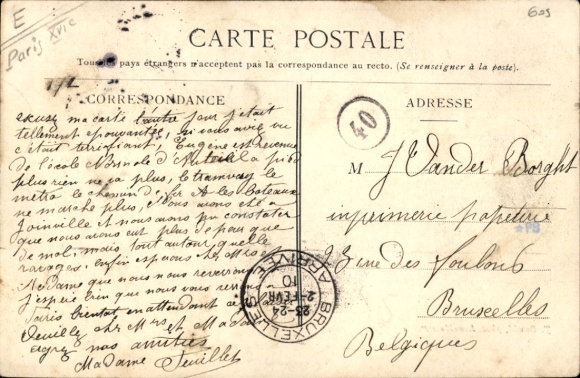 E
Paris XVIe
609
CARTE POSTALE
Tous les pays étrangers n'acceptent pas la correspondance au recto. (Se renseigner à la poste).
CORRESPONDANCE
excusez ma carte l'autre jour j'était
tellement épouvantée, si vous aviez vu
c'était terrifiant, Eugène est revenue
de l'école Normale d'Auteuil a pied
plus rien ne va plus, le tramway le
métro le chemin d'fer et les bateaux
ne marche plus, nous avons été a
Joinville et nous avons pu constater
que nous avons eut plus de peur que
de mal, mais tout autour quelle
ravages, enfin espérons cher Mr et
Madame que nous nous reverrons
j'espère bien que nous vous
Paris bientôt en attendant
Veuillez cher Mrs et Madame
agréez nos amitiés
Madame Feuillet
ADRESSE
40
M J Vander Borght
imprimerie papeterie
23 rue des Foulons
Bruxelles
Belgiques
BRUXELLES
ARRIVÉE
23-24
2-FEVR
10
PB